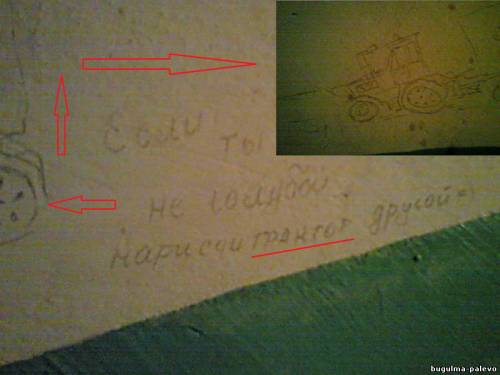 Если
ты
не голубой
нарисуй трактор другой =)
bugulma-palevo